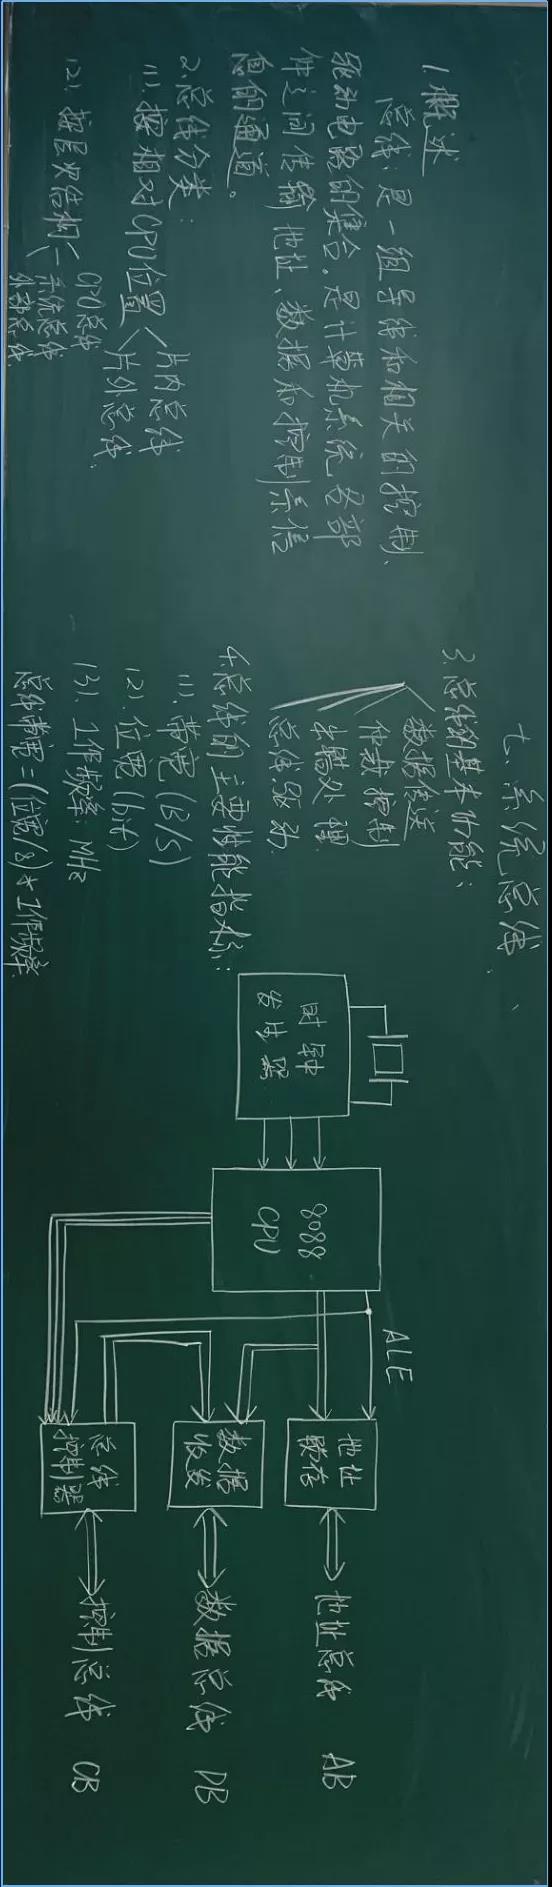 七、系统总线
1.概述
总线：是一组导线和相关的控制、
驱动电路的集合。是计算机系统各部
件之间传输地址、数据和控制系信
息的通道。
2.总线分类：
(1).按相对CPU位置
片内总线
片外总线.
(2).按层次结构
CPU总线
系统总线
外部总线.
3.总线的基本功能：
数据传送
仲裁控制
出错处理
总线驱动.
4.总线的主要性能指标：
(1).带宽(B/S)
(2).位宽(bit)
(3).工作频率：MHz
总线带宽=(位宽/8)*工作频率.
时钟
发生器
8088
CPU
ALE
地址
锁存
数据
收发
总线
控制器
地址总线 AB
数据总线 DB
控制总线 CB